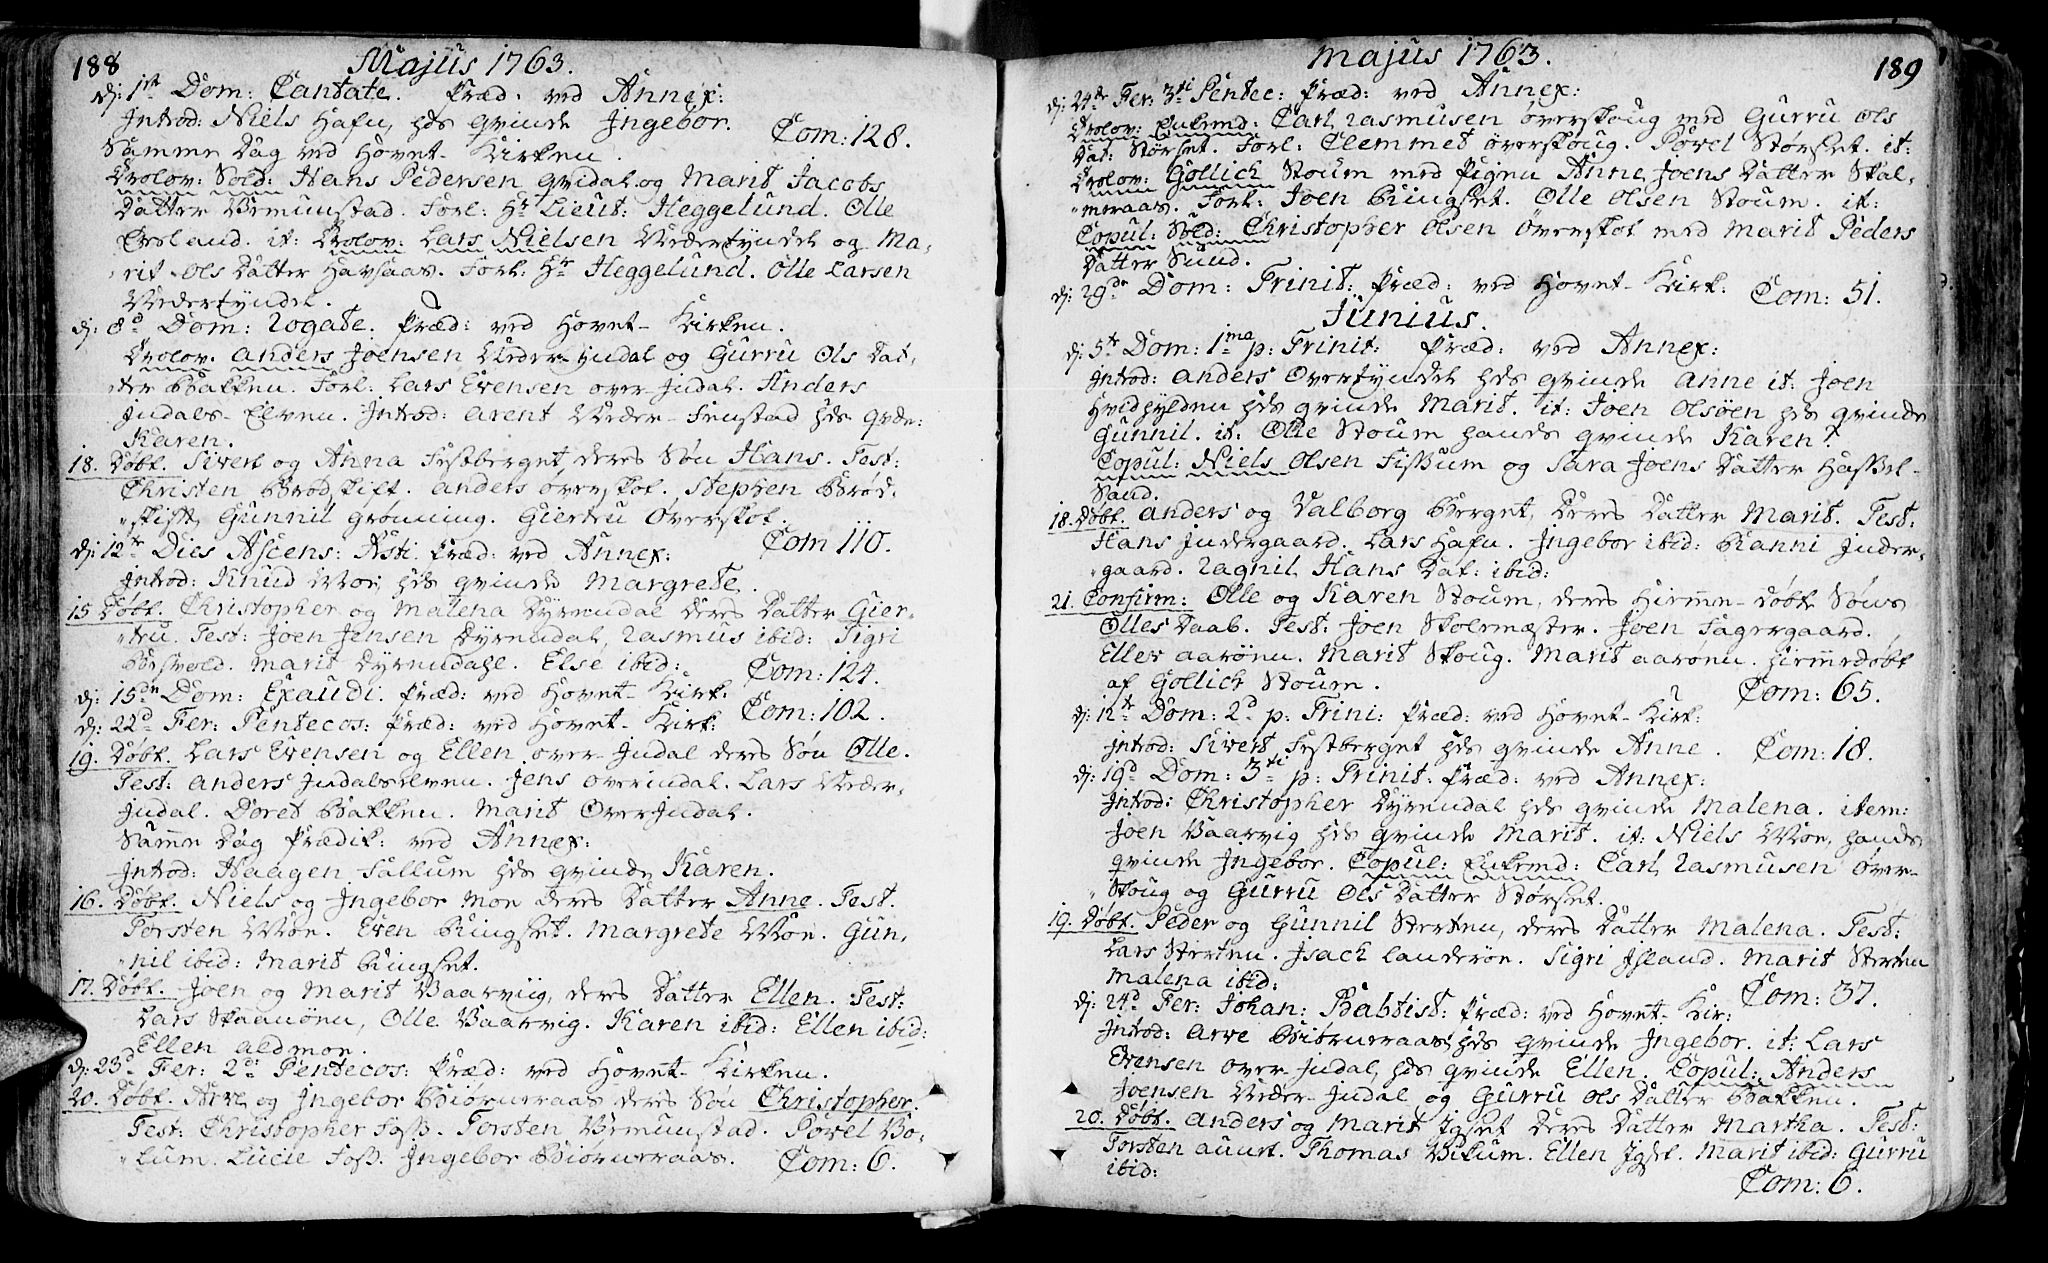 188 Majus 1763.
dj: 1st Dom: Cantate. Præd. ved Annex:
Introd: Niels Hafn, hds Qvinde Ingebor. Com: 128.
Samme Dag ved Hovet-Kirken.
Trolov: Sold: Hans Pedersen Qvidal og Marit Jacobs
Datter Vrmunstad. Forl: Hr Lieut: Heggelund. Olle
Orland. it: Trolov: Lars Nielsen Nedertyndel og Ma-
rit Ols Datter Havsaas. Forl: Hr Heggelund. Olle Larsen
Nedertyndel.
dj: 8d Dom: Rogate. Præd: ved Hovet-Kirken.
Trolov. Anders Joensen Neder-Jndal og Gurru Ols Dat-
ter Bakken. Forl: Lars Evensen over Jndal. Anders
Jndals-Elven. Introd: Arent Neder-Fenstad hds Qvde:
Karen.
18. Døbt. Sivert og Anna Festberget, deres Søn Hans. Test:
Christen Brødskift. Anders Overskot. Stephen Brød-
skift, Gunnil Grønning. Giertru Overskot.
dj: 12te Dies Ascens: Xsti Præd: ved Annex: Com 110.
Introd: Knud Moe, hds Qvinde Margrete.
15 Døbt. Christopher og Malena Dyrendal deres Datter Gier-
tru. Test: Joen Jensen Dyrendal, Rasmus ibid: Sigri
Bosvold. Marit Dyrendahl. Else ibid: Com: 124.
dj: 15de Dom: Exaudi. Præd: ved Hovet-Kirk.
dj: 22d Fer: Pentecos: Præd: ved Hovet-Kirk: Com: 102.
19. Døbt. Lars Evensen og Ellen over-Jndal deres Søn Olle.
Test: Anders Jndalselven. Jens overindal. Lars Neder-
Jndal. Doret Bakken. Marit OverJndal.
Samme Dag Prædik: ved Annex:
Introd: Haagen Sallum hds Qvinde Karen.
16. Døbt. Niels og Ingebor Moe deres Datter Anne. Test.
Torsten Moe. Even Ringset. Margrete Moe. Gun-
nil ibid: Marit Ringset.
17. Døbt. Joen og Marit Vaarviig, deres Datter Ellen. Test:
Lars Skaanønn, Olle Vaarvig. Karen ibid: Ellen ibid:
Ellen Aldmoe.
dj: 23d Fer: 2di Pentecos: Præd: ved Hovet-Kirken.
20. Døbt. Arve og Ingebor Biørneraas deres Søn Christopher.
Test: Christopher Foss. Torsten Vrmunstad. Povel Bo-
lum. Lucie Foss. Ingebor Biørneraas. Com: 6.
Majus 1763. 189
dj: 24de Fer: 3ti Pentec: Præd: ved Annex:
Trolov: Enkemd: Carl Rasmusen Overskoug med Gurru Ols
Dat: Størset. Forl: Clemmet Overskoug. Povel Størset. it:
Trolov: Gollich Stoum med Pigen Anne Joens Datter Skal-
meraas. Forl: Joen Ringset. Olle Olsen Stoum. it:
Copul: Sold: Christopher Olsen Overskot med Marit Peders
Datter Sund.
dj: 29de Dom: Trinit: Præd: ved Hovet-Kirk: Com: 51.
Junius.
dj: 5te Dom: 1ma p: Trinit: Præd: ved Annex:
Introd: Anders Overtyndel hds Qvinde Anne it: Joen
Hvidhylden hds Qvinde Marit. it: Joen Olsøen hds Qvinde
Gunnil. it: Olle Stoum hands Qvinde Karen.
Copul: Niels Olsen Fissum og Sara Joens Datter Hassel-
Sand.
18. Døbt. Anders og Valborg Berget, Deres Datter Marit. Test:
Hans Jndergaard. Lars Hafn. Ingebor ibid: Ranni Jnder-
gaard. Ragnil Hans Dat: ibid:
21. Confirm: Olle og Karen Stoum, deres Hiemme-døbt Søns
Olles Daab. Test: Joen Skolemæster. Joen Fagergaard.
Eller Aarønn. Marit Skoug. Marit Aarønn. Hiemmedøbt
af Gollich Stoum. Com: 65.
dj: 12te Dom: 2d p: Trini: Præd: ved Hovet-Kirk:
Introd: Sivert Festberget hds Qvinde Anne. Com: 18.
dj: 19d Dom: 3tie p: Trinit: Præd: ved Annex:
Introd: Christopher Dyrendal hds Qvinde Malena. item:
Joen Vaarvig hds Qvinde Marit. it: Niels Moe, hands
Qvinde Ingebor. Copul: Enkemd: Carl Rasmusen Over-
skoug og Gurru Ols Datter Størset.
19. Døbt. Peder og Gunnil Sterten, deres Datter Malena. Test:
Lars Sterten. Jsach Landerøe. Sigri Jsland. Marit Sterten
Malena ibid: Com: 37.
dj: 24d Fer: Johan: Babtist: Præd: ved Hovet-Kir:
Introd: Arve Biørneraas, hds Qvinde Ingebor. it: Lars
Evensen over-Jndal, hds Qvinde Ellen. Copul: Anders
Joensen Neder-Jndal og Gurru Ols Datter Bakken.
20. Døbt. Anders og Marit Jgset Deres Datter Martha. Test:
Torsten Aaunt. Thomas Vikum. Ellen Jgset. Marit ibid: Gurru
ibid: Com: 6.